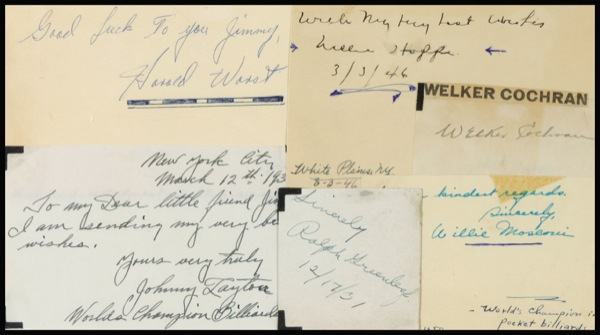 Good Luck To you Jimmy,
Harold Worst
With My Very Best Wishes
Willie Hoppe
3/3/46
White Plains N.Y.
3-3-46
WELKER COCHRAN
Welker Cochran
New York City
March 12th 193
To my Dear little friend Jim
I am sending my very be
wishes.
Yours very truly
Johnny Layton
World's Champion Billiards
Sincerely
Ralph Greenleaf
12/17/31
kindest regards.
Sincerely
Willie Mosconi
- World's Champion in
pocket billiards